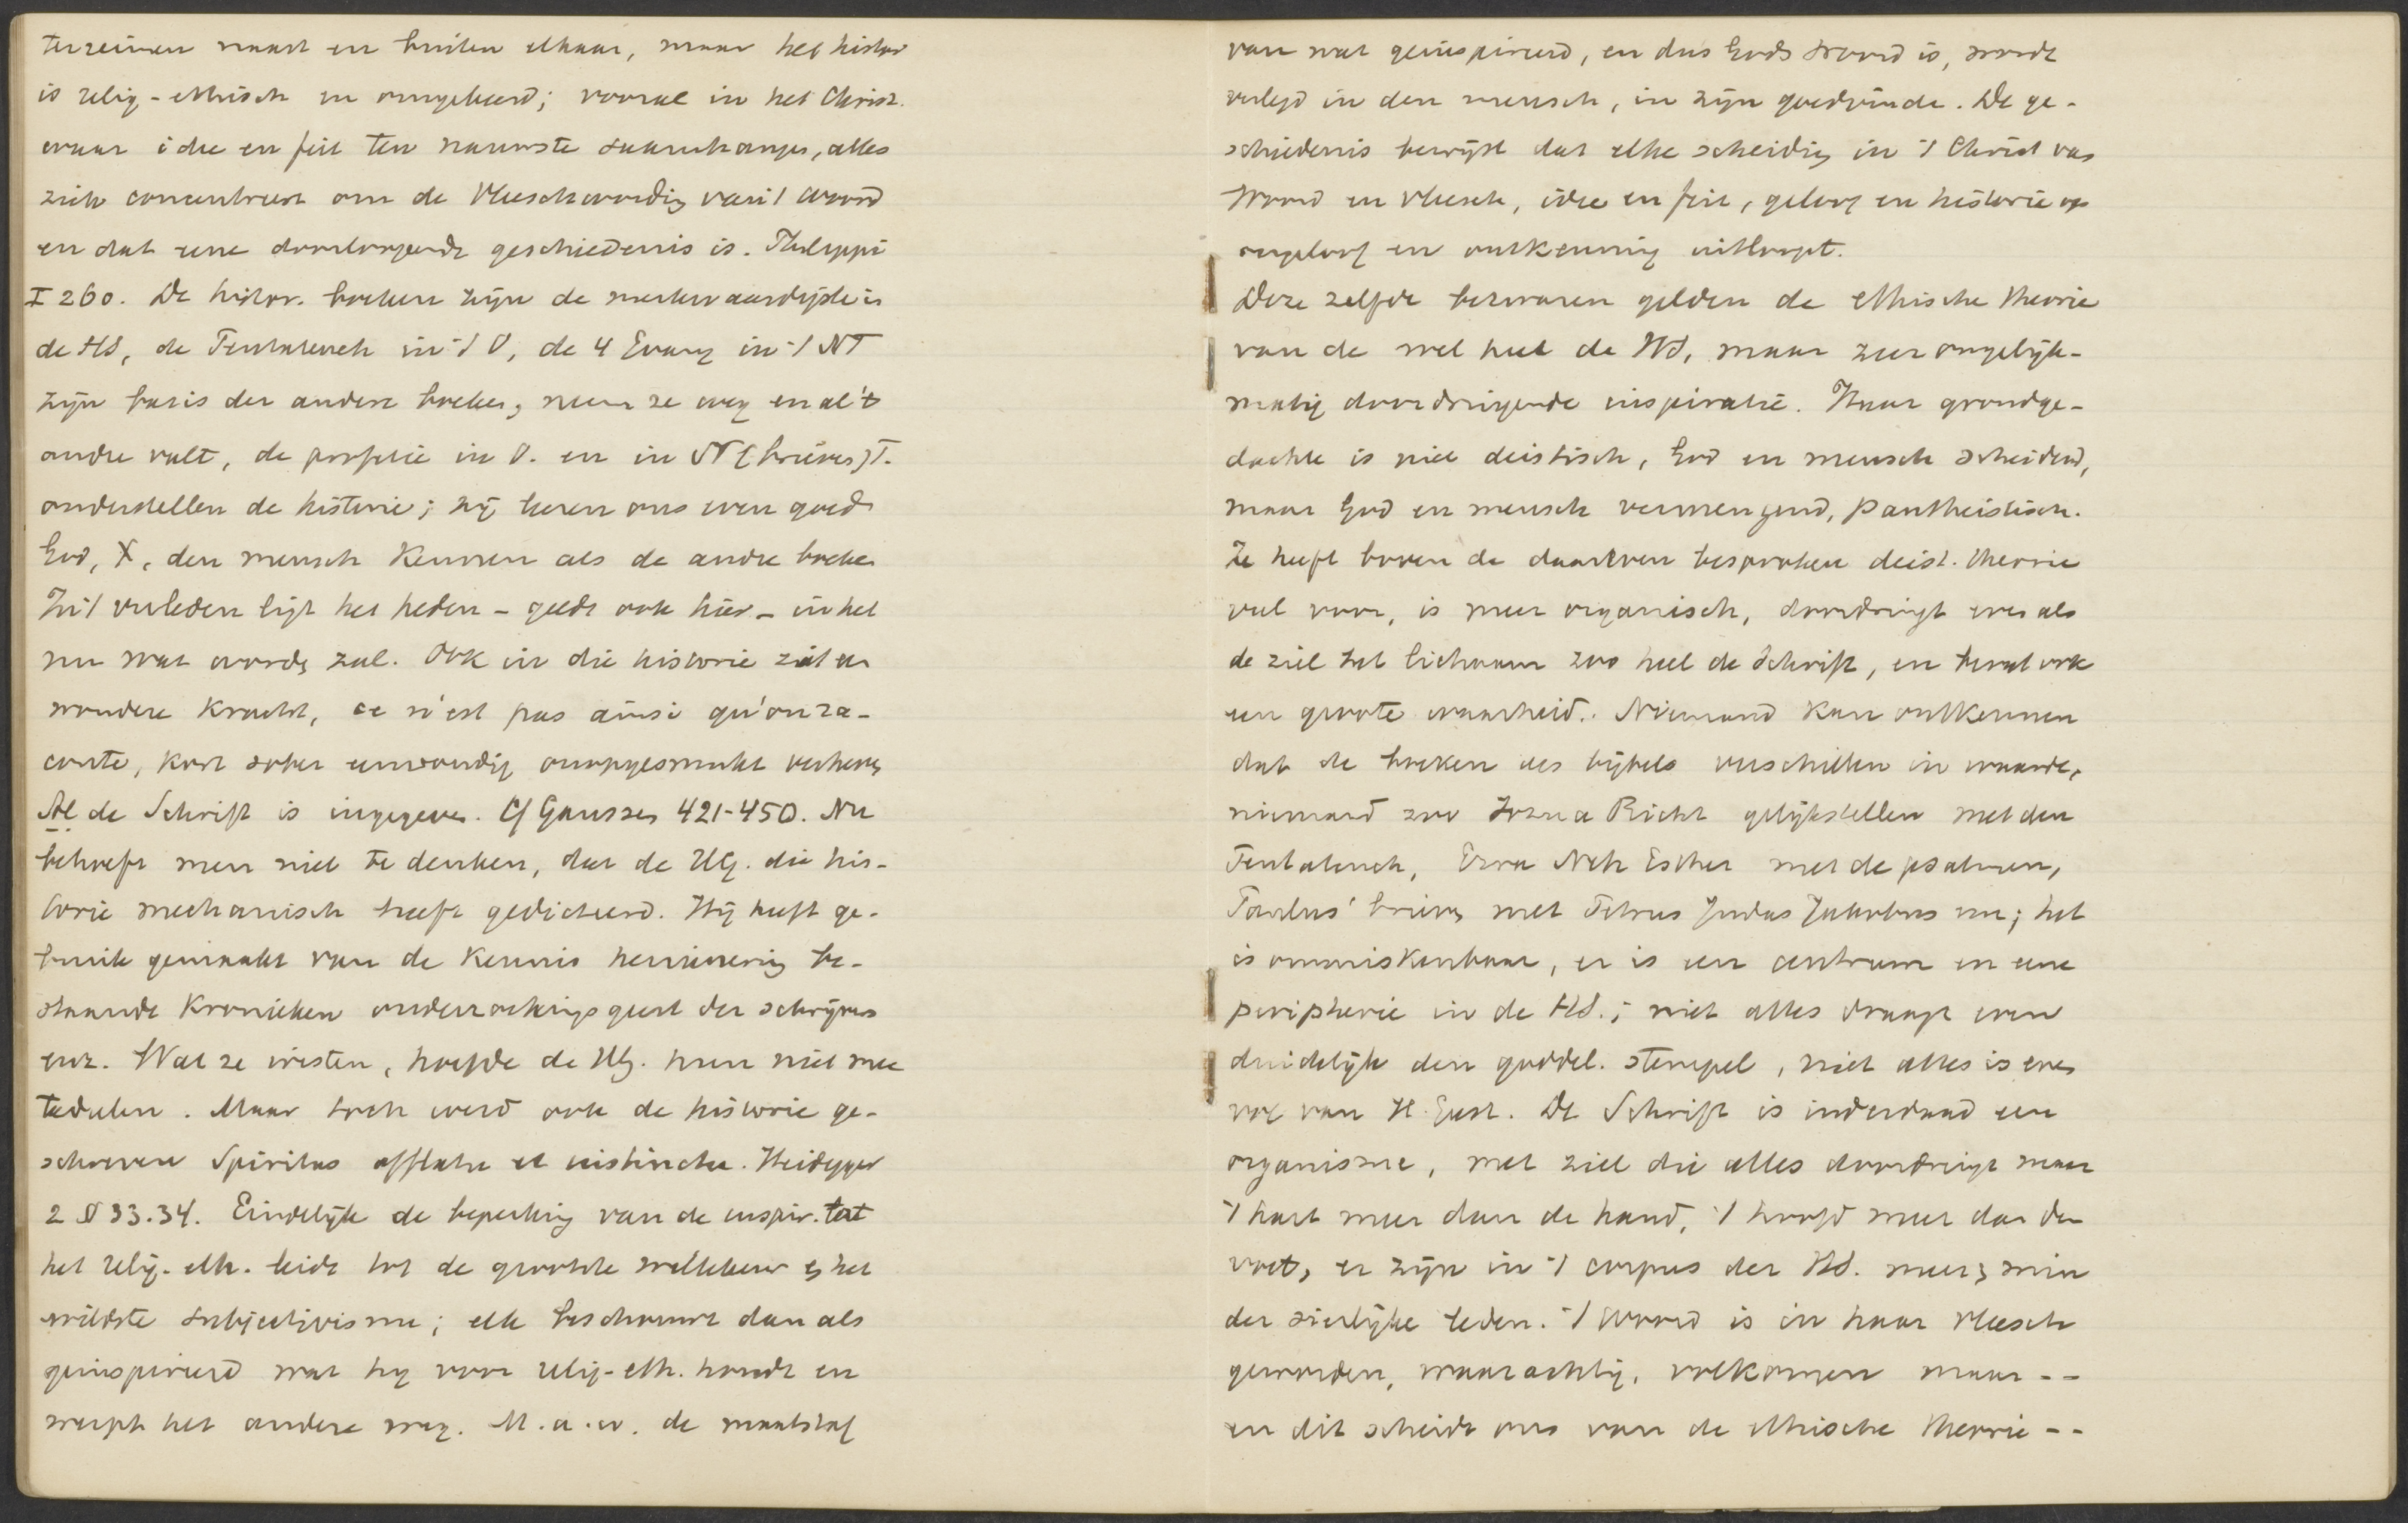 terreinen naast en buiten elkaar, maar het histor
is relig-ethisch en omgekeerd; vooral in het Christ.
waar idee en feit ten nauwste saamhangen, alles
zich concentreert om de Vleeschwording van 't Woord
en dat eene doorloopende geschiedenis is. Philippi
I 260. De histor. boeken zijn de merkwaardigste in
de HS, de Pentateuch in 't O, de 4 Evang in 't NT
zijn basis der andere boeken, neem ze weg en al 't
andre valt, de profetie in O. en in NT (brieven) T.
onderstellen de historie; zij leeren ons even goed
God, X, den mensch kennen als de andre boeken
In 't verleden ligt het heden - geldt ook hier - in het
nu wat worden zal. Ook in die historie zit een
wondere kracht, ce n'est pas ainsi qu'on ra-
conte, kort sober eenvoudig onopgesmukt verheven
Al de Schrift is ingegeven. Cf Gaussen 421-450. Nu
behoeft men niet te denken, dat de HG. die his-
torie mechanisch heeft gedicteerd. Hij heeft ge-
bruik gemaakt van de kennis herinnering be-
staande Kronieken onderzoekingsgeest der schrijvers
enz. Wat ze wisten, hoefde de HG. hun niet mee
tedeelen. Maar toch werd ook de historie ge-
schreven Spiritus afflatu et instinctu. Heidegger
2 § 33.34. Eindelijk de beperking van de inspir. tot
het relig-eth. leidt tot de grootste willekeur en het
wildste subjectivisme; elk beschouwt dan als
geinspireerd wat hij voor relig-eth. houdt en
werpt het andere weg. M.a.w. de maatstaf
van wat geinspireerd, en dus Gods Woord is, wordt
verlegd in den mensch, in zijn goedvinden. De ge-
schiedenis bewijst dat elke scheiding in 't Christ van
Woord en vleesch, idee en feit, geloof en historie op
ongeloof en ontkenning uitloopt.
Deze zelfde bezwaren gelden de ethische theorie
van de wel heel de HS, maar zeer ongelijk-
matig doordringende inspiratie. Haar grondge-
dachte is niet deistisch, God en mensch scheidend,
maar God en mensch vermengend, pantheistisch.
Ze heeft boven de daareven besproken deist. theorie
veel voor, is meer organisch, doordringt even als
de ziel het lichaam zoo heel de Schrift, en bevat ook
een groote waarheid. Niemand kan ontkennen
dat de boeken des bijbels verschillen in waarde,
niemand zoo Jozua Richt gelijkstellen met den
Pentateuch, Ezra Neh Esther met de psalmen,
Paulus' brieven met Petrus Judas Jakobus enz; het
is onmiskenbaar, er is een centrum en eene
peripherie in de HS.; niet alles draagt even
duidelijk den goddel. stempel, niet alles is even
vol van H. Geest. De Schrift is inderdaad een
organisme, met ziel die alles doordringt maar
't hart meer dan de hand, 't hoofd meer dan den
voet, er zijn in 't corpus der HS. meer en min
der sierlijke leden. 't Woord is in haar vleesch
geworden, waarachtig, volkomen maar --
en dit scheidt ons van de ethische theorie --